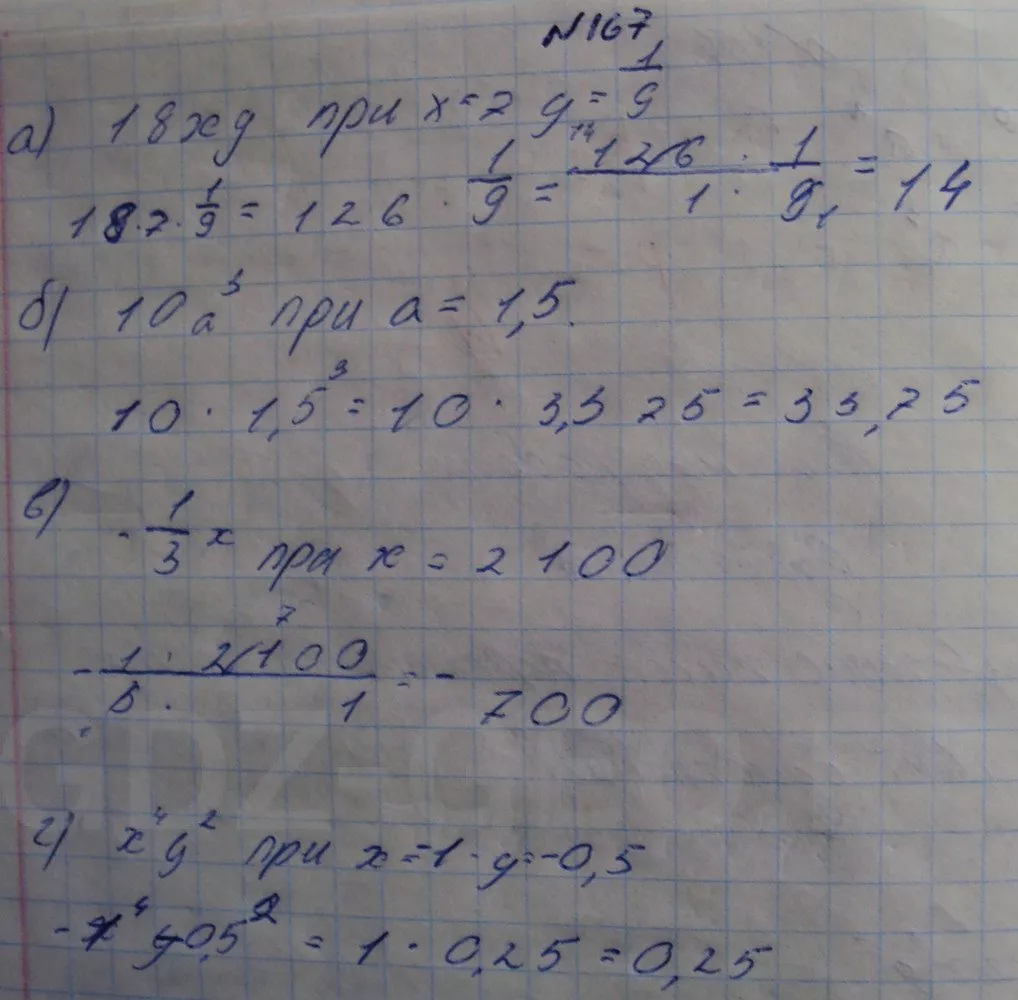 N167
а) 18xy при x=7 y=1/9
18·7·1/9 = 126 · 1/9 = 126 · 1 / 1 · 9 = 14
14
1
б) 10a³ при a = 1,5.
10 · 1,5³ = 10 · 3,3 25 = 33,75
в) -1/3 x при x = 2100
7
-1 · 2100 / 3 · 1 = - 700
г) x⁴y² при x=-1 y=-0,5
-1⁴ -0,5² = 1 · 0,25 = 0,25